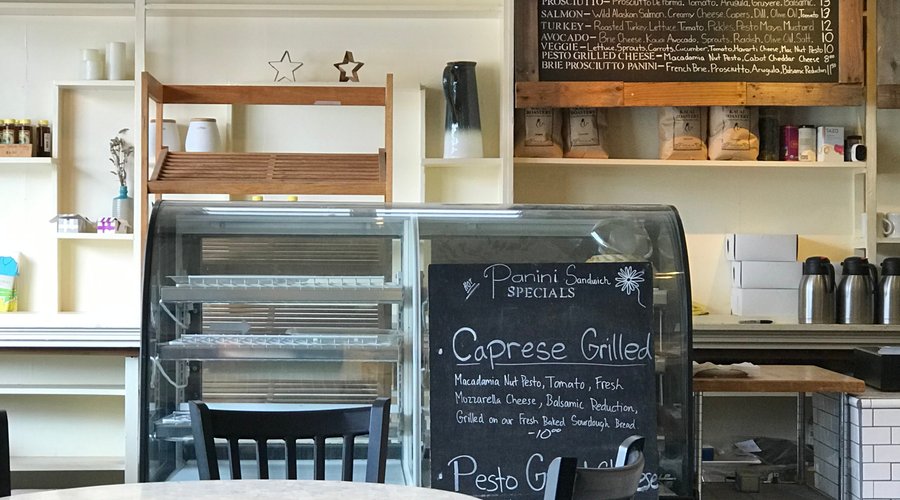 PROSCIUTTO - Prosciutto Di Parma, Tomato, Arugula, Gruyere, Balsamic 13
SALMON - Wild Alaskan Salmon, Creamy Cheese, Capers, Dill, Olive Oil, Tomato 13
TURKEY - Roasted Turkey, Lettuce Tomato, Pickles, Pesto Mayo, Mustard 12
AVOCADO - Brie Cheese, Kauai Avocado, Sprouts, Radish, Olive Oil, Salt 10
VEGGIE - Lettuce, Sprouts, Carrots, Cucumber, Tomato, Havarti Cheese, Mac Nut Pesto 10
PESTO GRILLED CHEESE - Macadamia Nut Pesto, Cabot Cheddar Cheese 8⁰⁰
BRIE PROSCIUTTO PANINI - French Brie, Prosciutto, Arugula, Balsamic Reduction 11⁵⁰
Panini Sandwich
SPECIALS
• Caprese Grilled
Macadamia Nut Pesto, Tomato, Fresh
Mozzarella Cheese, Balsamic Reduction,
Grilled on our Fresh Baked Sourdough Bread
-10⁰⁰
• Pesto